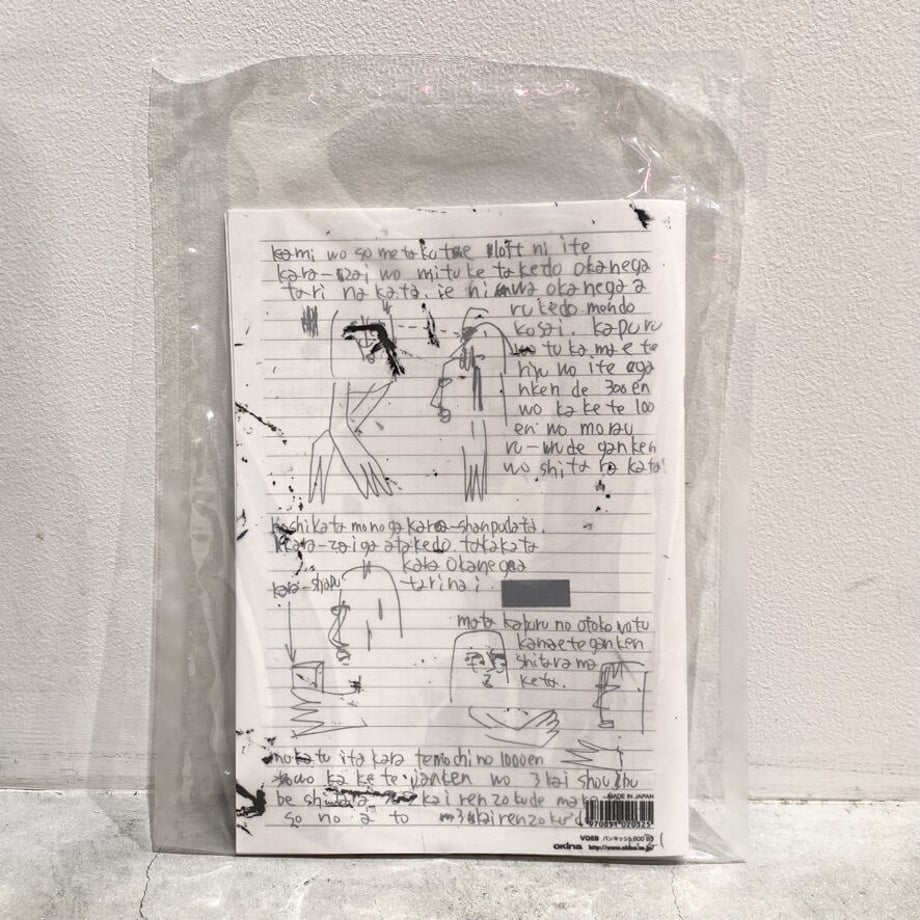 kami wo so me ta ku tme loft ni ite
kara-zai wo mituke ta kedo okanega
tari na kata. ie ni wa okanega a
ru kedo mendo
kusai. kapuru
wo tu ka ma e te
hiju no ite aga
nken de 300 en
wo ka ke te 100
en wo morau
ru-ru de ganken
wo shi ta ra kata
hoshikata mono ga kara-shanpu data.
kara-zai ga atakedo. takakata
kara okanega
tari na i.
kara-shapu
mata kapuru no otoko wo tu
kamae te ganken
shitara ma
keta.
mokatu ita kara temochi no 1000en
wo ka ke te janken wo 3 kai shoubu
be shitara kai renzokude make
so no a to 3 kai renzoku d
MADE IN JAPAN
VQ6B パンキッシュ600 B5
okina http://www.okina.co.jp